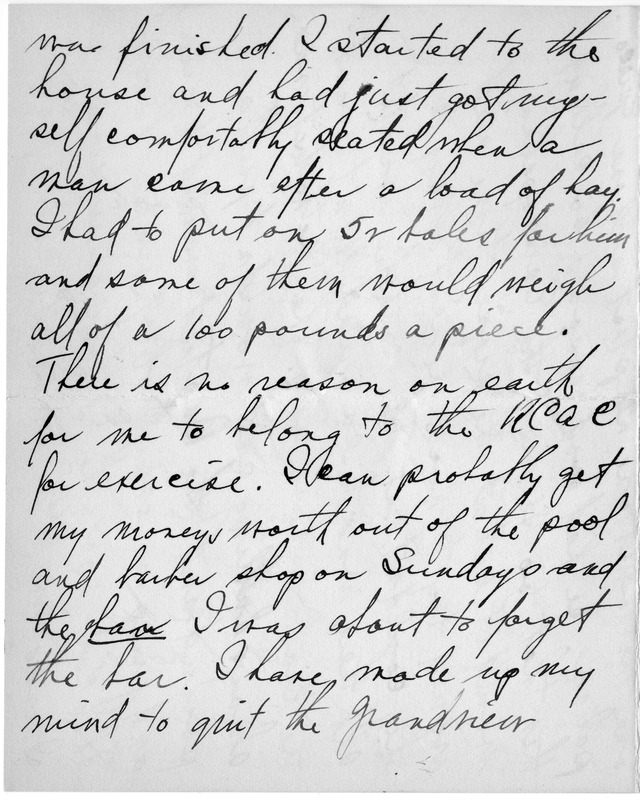 was finished. I started to the
house and had just got my-
self comfortably seated when a
man came after a load of hay.
I had to put on 52 bales for him
and some of them would weigh
all of a 100 pounds a piece.
There is no reason on earth
for me to belong to the KCAC
for exercise. I can probably get
my moneys worth out of the pool
and barber shop on Sundays and
the bar I was about to forget
the bar. I have made up my
mind to quit the Grandview